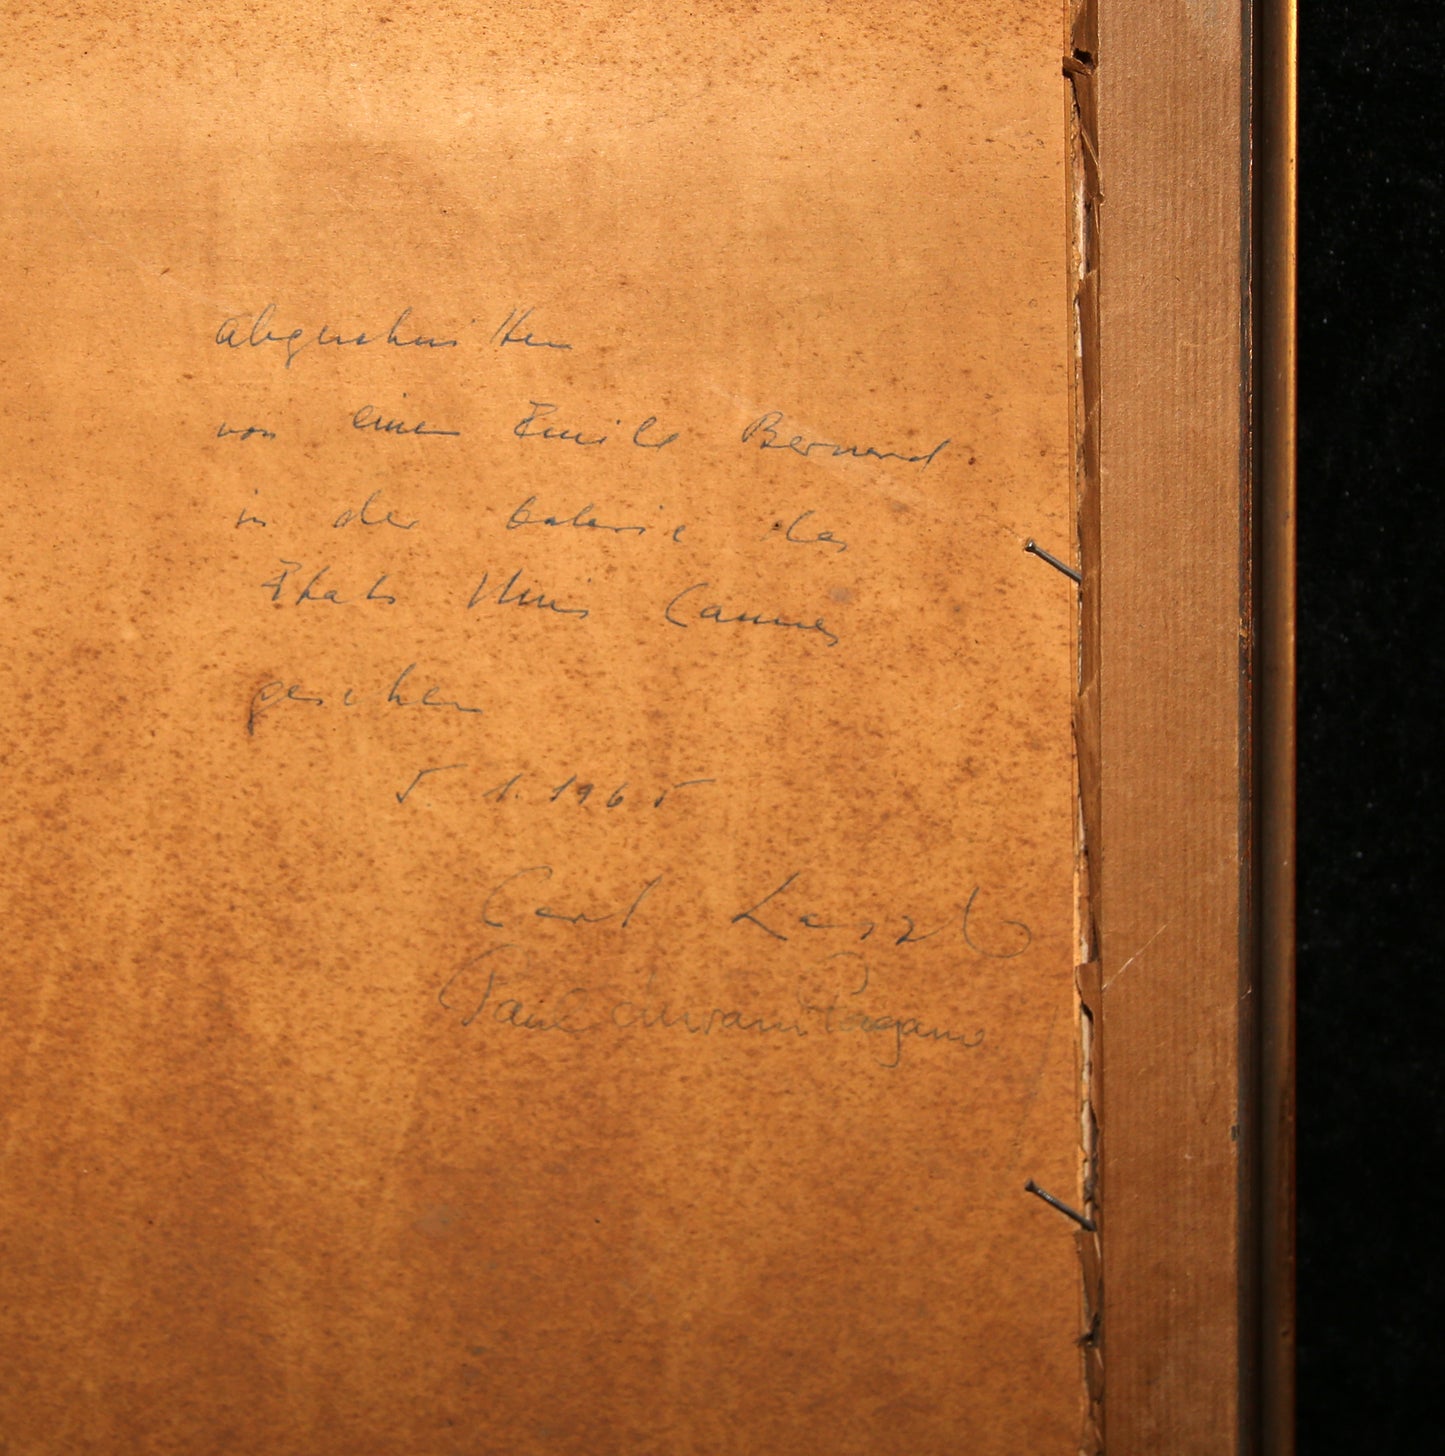 abgeschnitten
von einem Emile Bernard
in der Galerie des
Etats Unis Cannes
gesehen
5 1. 1965
Carl Laszlo
Paul Pagano